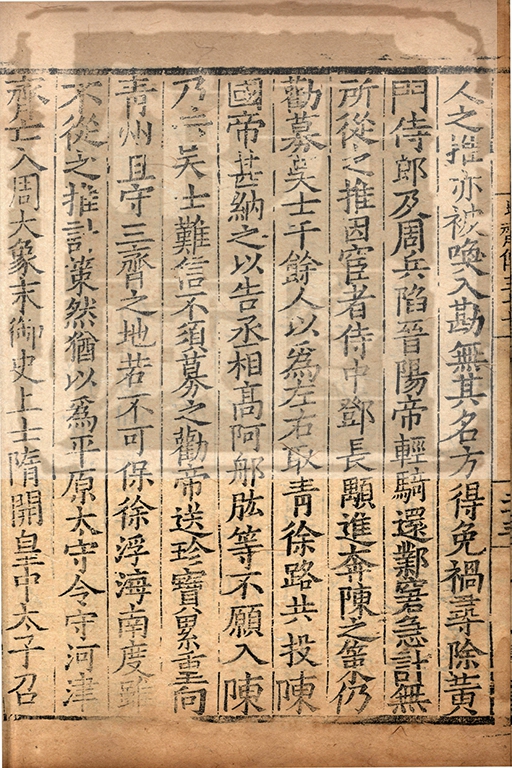 人之推亦被喚入勘無其名方得免禍尋除黄
門侍郎及周兵陷晉陽帝輕騎還鄴窘急計無
所從之推因宦者侍中鄧長顒進奔陳之策仍
勸募吳士千餘人以爲左右取青徐路共投陳
國帝甚納之以告丞相髙阿那肱等不願入陳
乃云吳士難信不須募之勸帝送珍寶累重向
青州且守三齊之地若不可保徐浮海南度雖
不從之推計策然猶以爲平原太守令守河津
齊亡入周大象末御史上士隋開皇中太子召